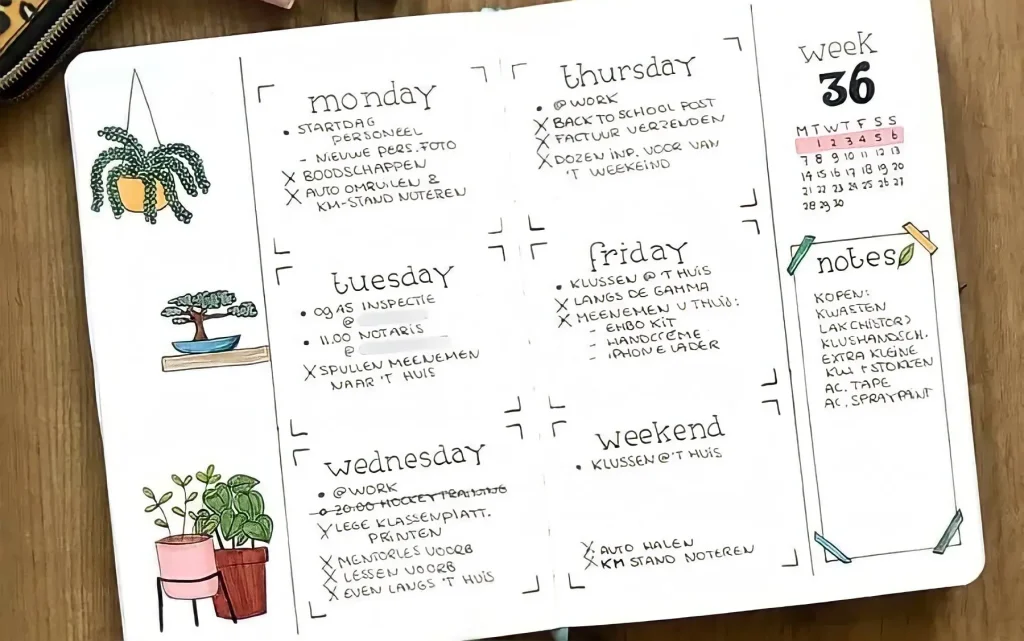 monday
• STARTDAG
PERSONEEL
- NIEUWE PERS. FOTO
X BOODSCHAPPEN
X AUTO OMRUILEN &
KM-STAND NOTEREN
tuesday
• 09.45 INSPECTIE
@
• 11.00 NOTARIS
@
X SPULLEN MEENEMEN
NAAR 'T HUIS
wednesday
• @WORK
• 20.00 HOCKEYTRAINING
X LEGE KLASSENPLATT.
PRINTEN
X MENTORLES VOORB
X LESSEN VOORB
X EVEN LANGS 'T HUIS
thursday
• @WORK
X BACK TO SCHOOL POST
X FACTUUR VERZENDEN
X DOZEN INP. VOOR VAN
'T WEEKEIND
friday
• KLUSSEN @ 'T HUIS
X LANGS DE GAMMA
X MEENEMEN V THUIS:
- EHBO KIT
- HANDCRÈME
- IPHONE LADER
weekend
• KLUSSEN @ 'T HUIS
X AUTO HALEN
X KM STAND NOTEREN
week
36
M T W T F S S
1 2 3 4 5 6
7 8 9 10 11 12 13
14 15 16 17 18 19 20
21 22 23 24 25 26 27
28 29 30
notes
KOPEN:
KWASTEN
KLUSHANDSCH.
EXTRA KLEINE
+ STOKKEN
AC. TAPE
AC. SPRAYPAINT